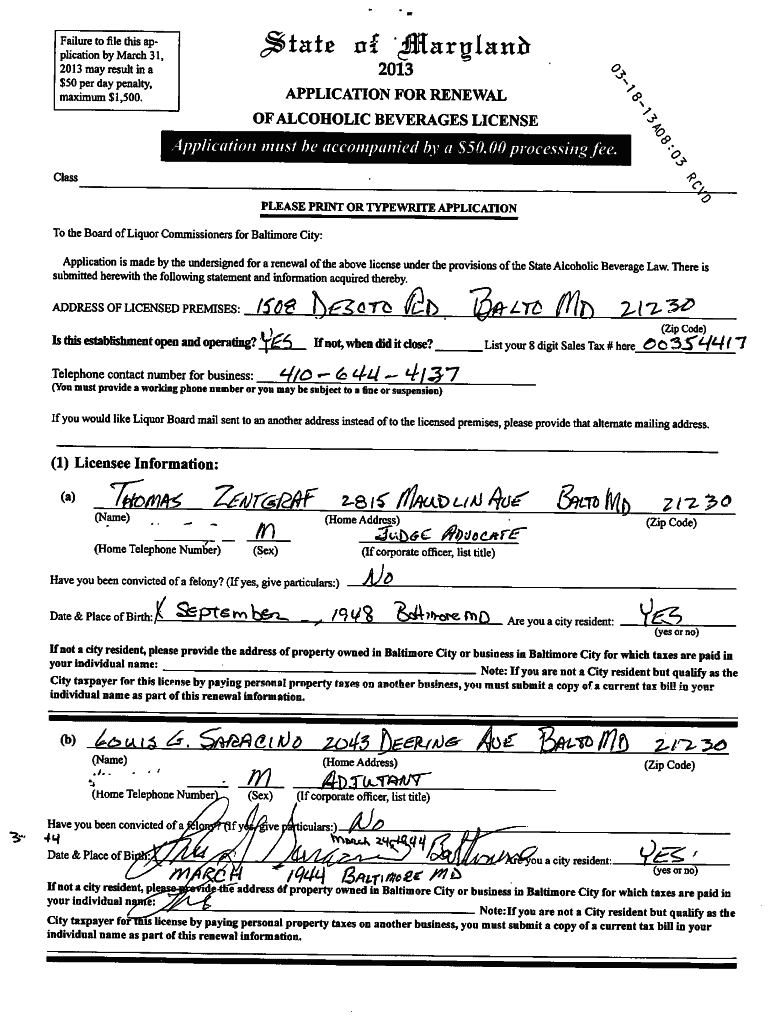 Failure to file this ap-
plication by March 31,
2013 may result in a
$50 per day penalty,
maximum $1,500.
State of Maryland
2013
APPLICATION FOR RENEWAL
OF ALCOHOLIC BEVERAGES LICENSE
03-18-13A08:03 RCVD
Application must be accompanied by a $50.00 processing fee.
Class
PLEASE PRINT OR TYPEWRITE APPLICATION
To the Board of Liquor Commissioners for Baltimore City:
Application is made by the undersigned for a renewal of the above license under the provisions of the State Alcoholic Beverage Law. There is
submitted herewith the following statement and information acquired thereby.
ADDRESS OF LICENSED PREMISES: 1508 DESOTO RD BALTO MD 21230
(Zip Code)
Is this establishment open and operating? YES If not, when did it close? List your 8 digit Sales Tax # here 00354417
Telephone contact number for business: 410-644-4137
(You must provide a working phone number or you may be subject to a fine or suspension)
If you would like Liquor Board mail sent to an another address instead of to the licensed premises, please provide that alternate mailing address.
(1) Licensee Information:
(a) THOMAS ZENTGRAF 2815 MAUDLIN AVE BALTO MD 21230
(Name) (Home Address) (Zip Code)
M JUDGE ADVOCATE
(Home Telephone Number) (Sex) (If corporate officer, list title)
Have you been convicted of a felony? (If yes, give particulars:) No
Date & Place of Birth: X September 1948 Baltimore MD Are you a city resident: YES
(yes or no)
If not a city resident, please provide the address of property owned in Baltimore City or business in Baltimore City for which taxes are paid in
your individual name: Note: If you are not a City resident but qualify as the
City taxpayer for this license by paying personal property taxes on another business, you must submit a copy of a current tax bill in your
individual name as part of this renewal information.
(b) LOUIS G. SARACINO 2043 DEERING AVE BALTO MD 21230
(Name) (Home Address) (Zip Code)
M ADJUTANT
(Home Telephone Number) (Sex) (If corporate officer, list title)
Have you been convicted of a felony? (If yes, give particulars:) No
March 24, 1944
Date & Place of Birth: Baltimore Are you a city resident: YES
MARCH 1944 BALTIMORE MD (yes or no)
If not a city resident, please provide the address of property owned in Baltimore City or business in Baltimore City for which taxes are paid in
your individual name: Note: If you are not a City resident but qualify as the
City taxpayer for this license by paying personal property taxes on another business, you must submit a copy of a current tax bill in your
individual name as part of this renewal information.